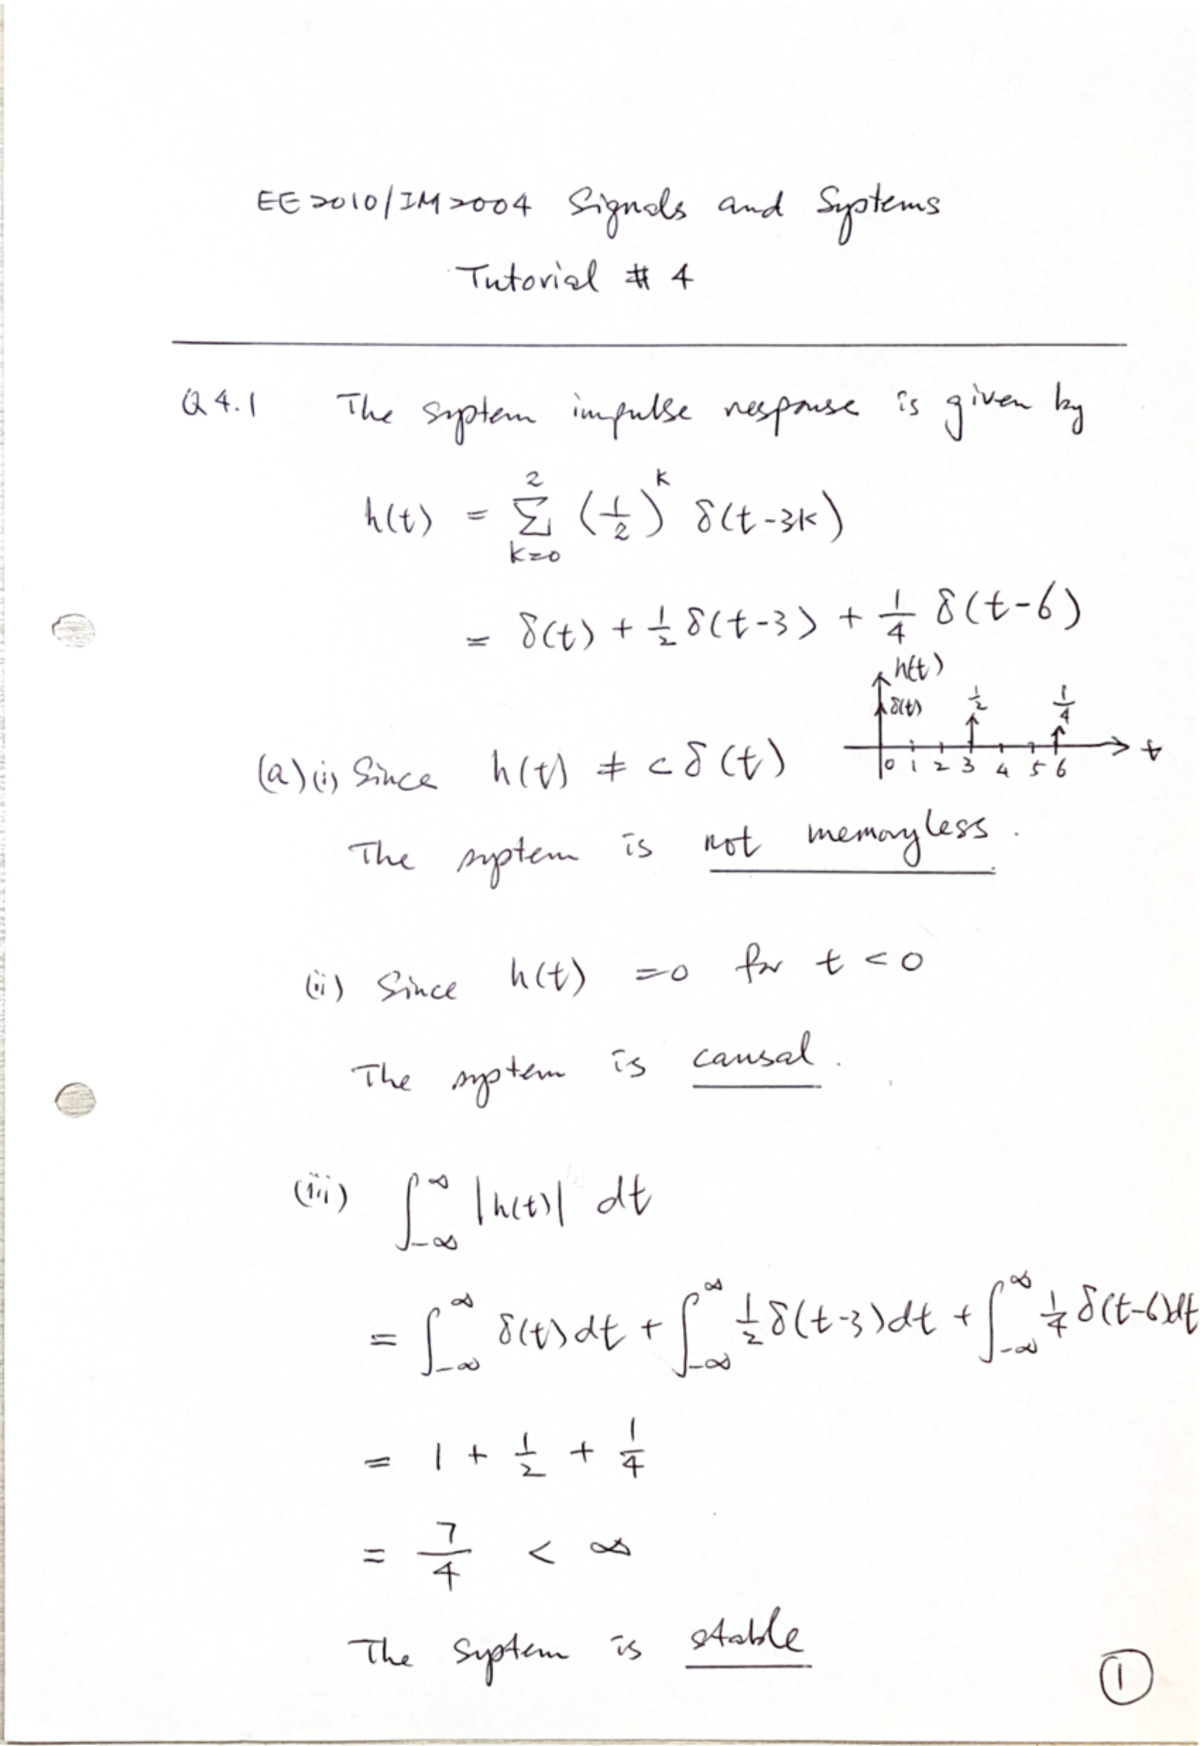 EE2010/IM2004 Signals and Systems
Tutorial # 4
Q4.1 The system impulse response is given by
h(t) = Σ_{k=0}^{2} (1/2)^k δ(t-3k)
= δ(t) + 1/2 δ(t-3) + 1/4 δ(t-6)
h(t)
δ(t) 1/2 1/4
0 1 2 3 4 5 6 t
(a)(i) Since h(t) ≠ cδ(t)
The system is not memoryless.
(ii) Since h(t) =0 for t<0
The system is causal.
(iii) ∫_{-∞}^{∞} |h(t)| dt
= ∫_{-∞}^{∞} δ(t)dt + ∫_{-∞}^{∞} 1/2 δ(t-3)dt + ∫_{-∞}^{∞} 1/4 δ(t-6)dt
= 1 + 1/2 + 1/4
= 7/4 < ∞
The system is stable
1